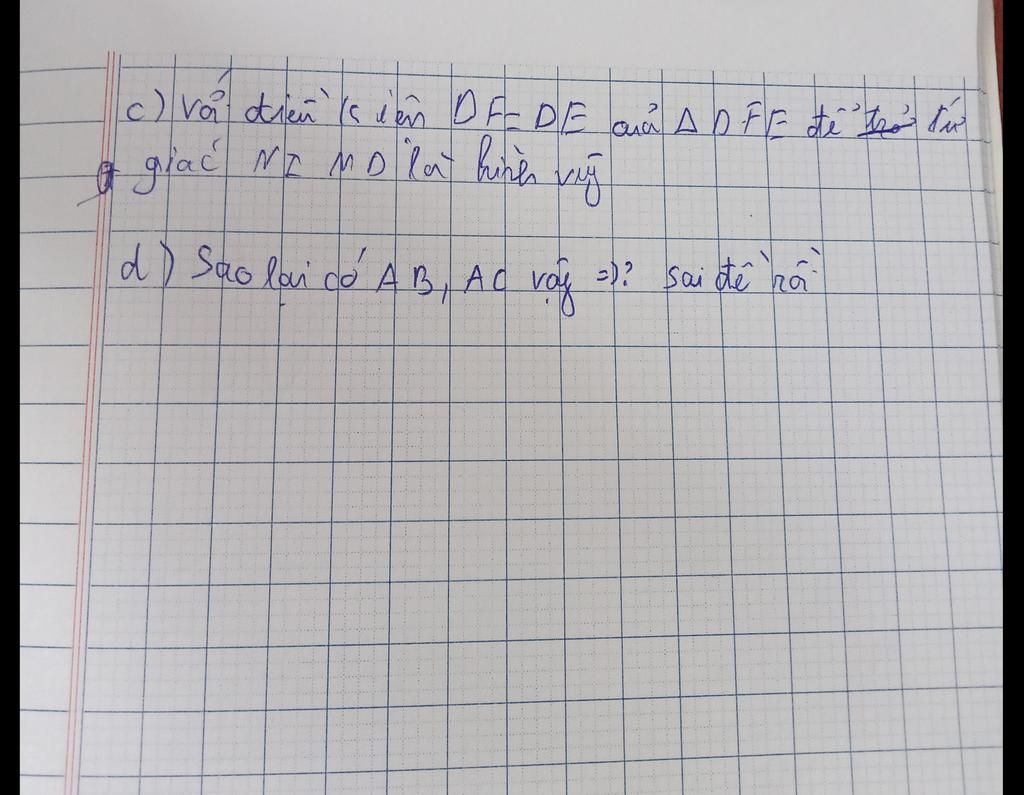 c) Vớ điều kiện DF = DE của Δ DFE để tứ
giác NIMD là hình vuông
d) Sao lại có AB, AC vậy =)? Sai đề rồi